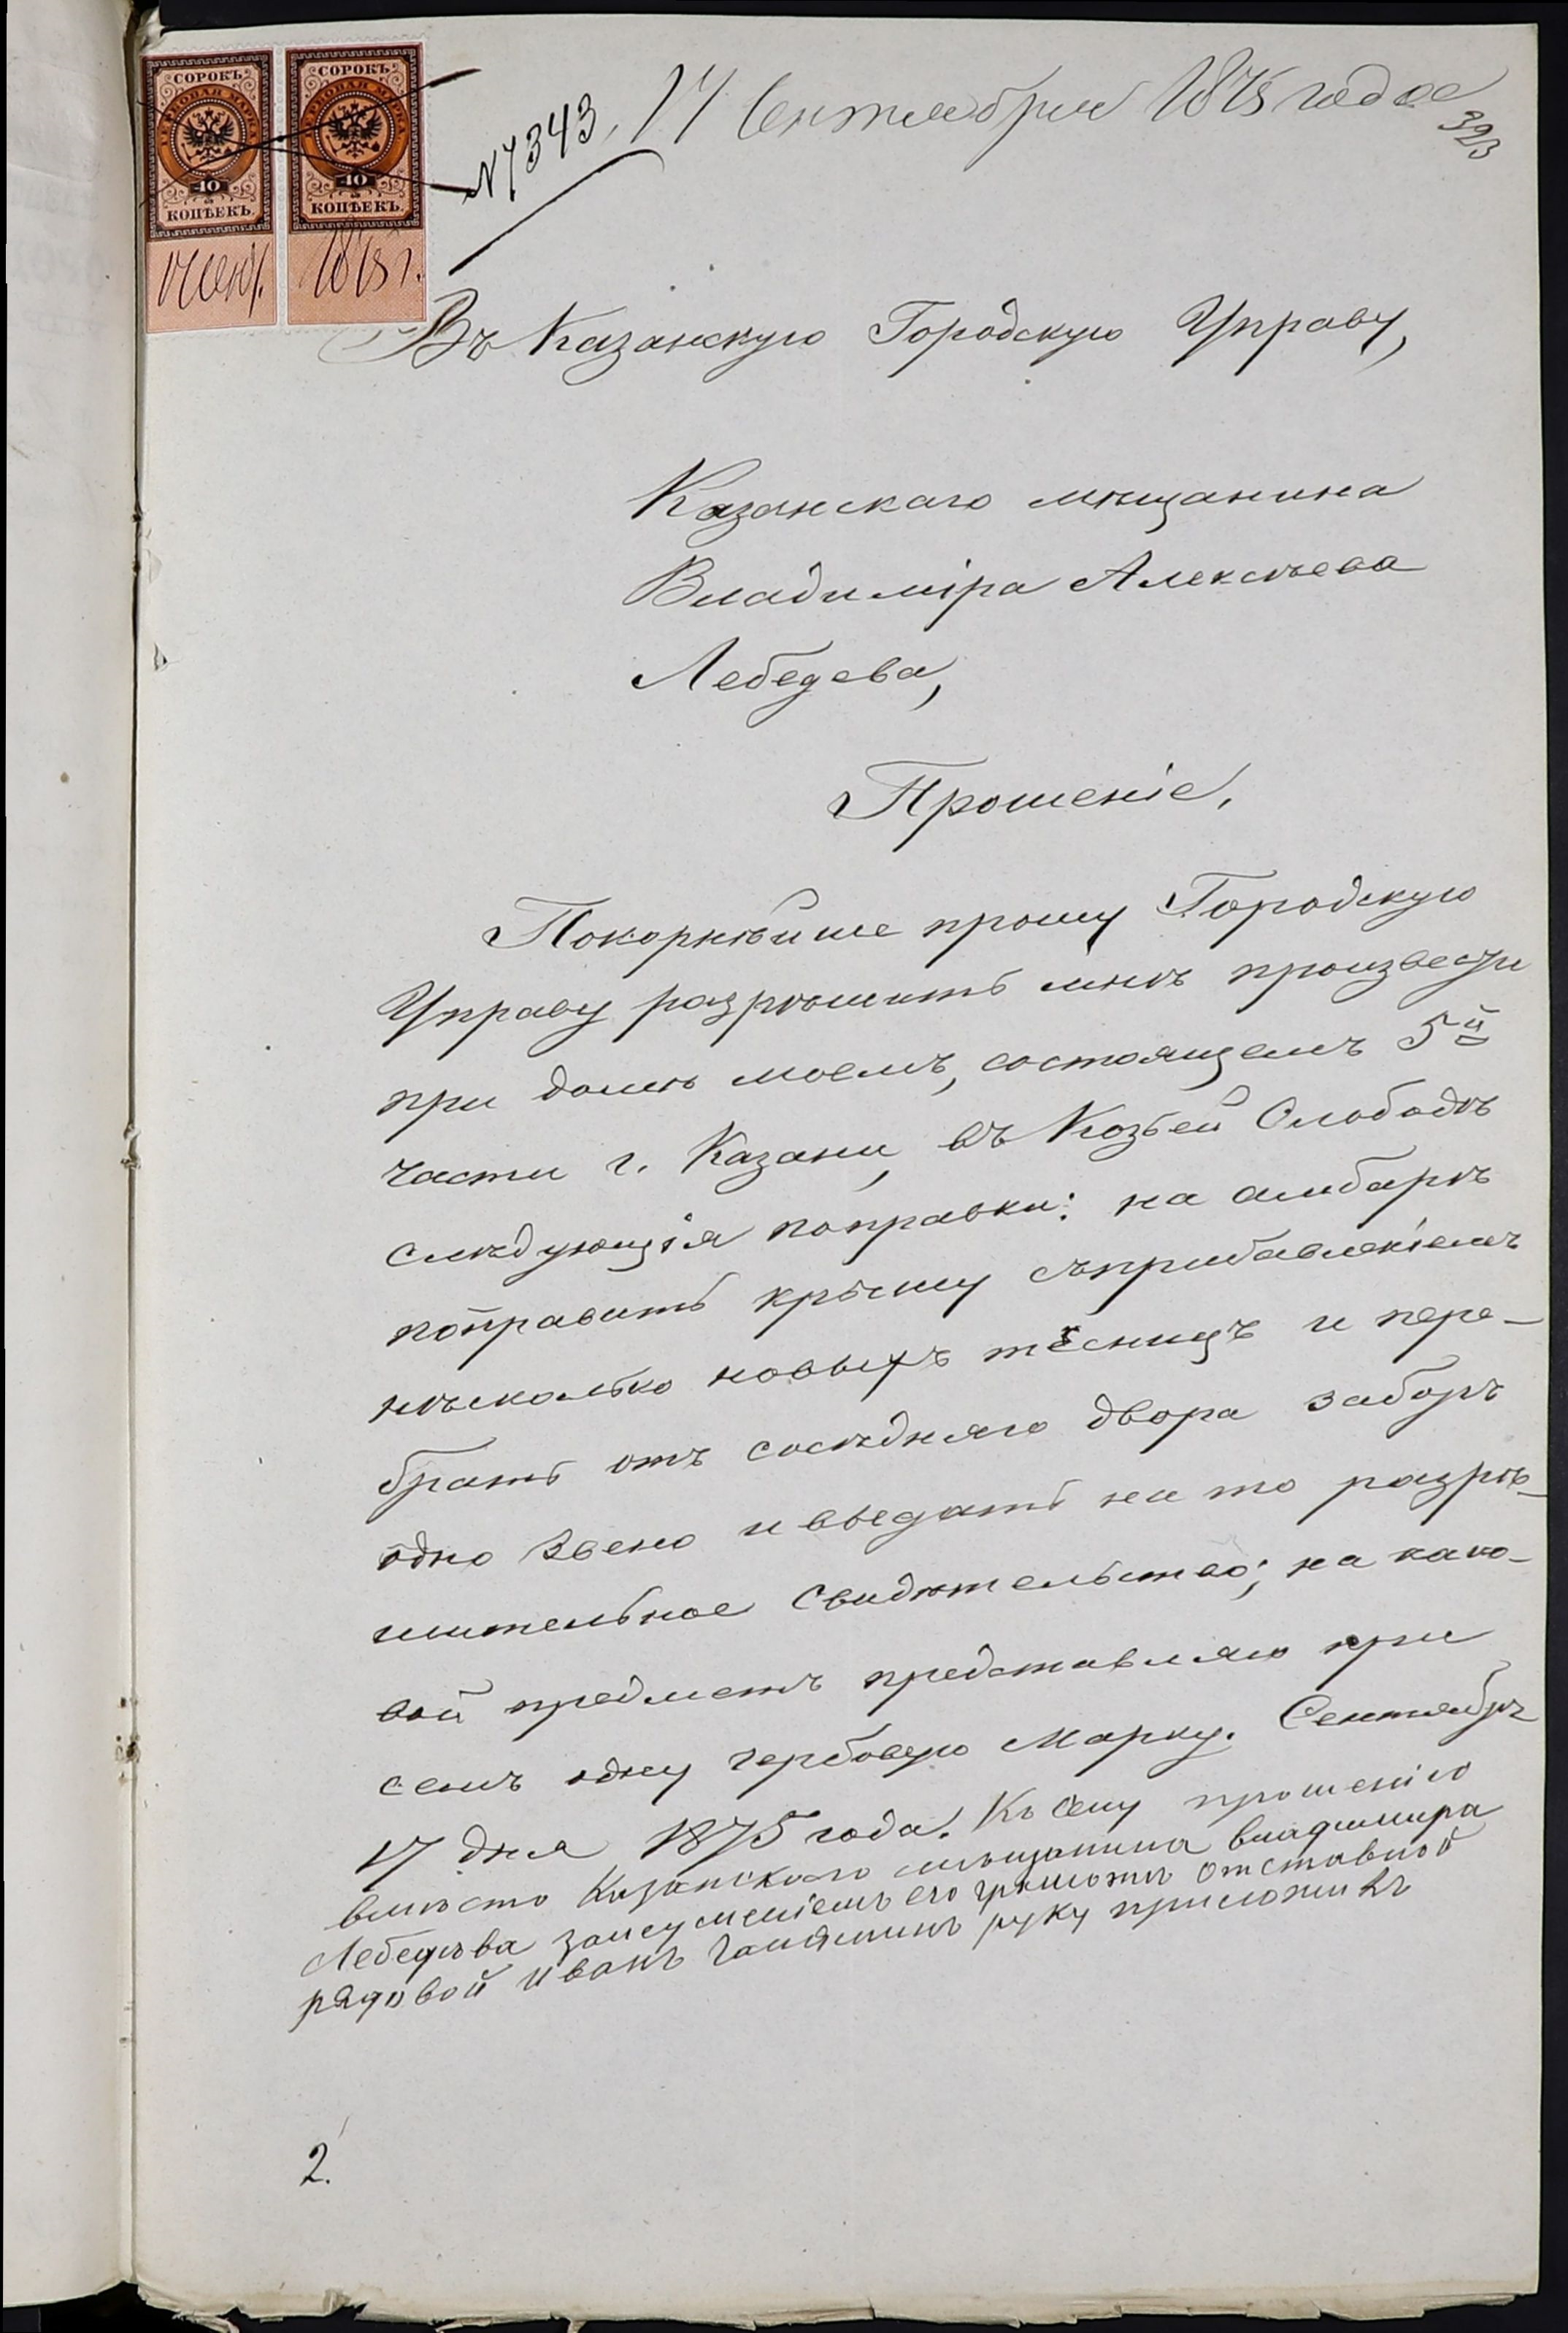 СОРОКЪ СОРОКЪ
ГЕРБОВАЯ МАРКА ГЕРБОВАЯ МАРКА
40 40
КОПѢЕКЪ. КОПѢЕКЪ.
17 Сент. 1875 г.
№ 7343, 17 Сентября 1875 года
323
Въ Казанскую Городскую Управу,
Казанскаго мѣщанина
Владиміра Алексѣева
Лебедева,
Прошеніе.
Покорнѣйше прошу Городскую
Управу разрѣшить мнѣ произвести
при домѣ моемъ, состоящемъ 5й
части г. Казани, въ Козьей Слободѣ
слѣдующія поправки: на амбарѣ
поправить крышу съприбавленіемъ
нѣсколько новыхъ тесницъ и пере-
брать отъ сосѣдняго двора заборъ
одно звено и выдать на то разрѣ-
шительное Свидѣтельство; на како-
вой предметъ представляю при
семъ одну гербовую Марку. Сентября
17 дня 1875 года. Къ сему прошенію
вмѣсто Казанскаго мѣщанина владимира
Лебедева занеумѣніемъ его грамотѣ отставной
рядовой иванъ руку приложилъ
2.